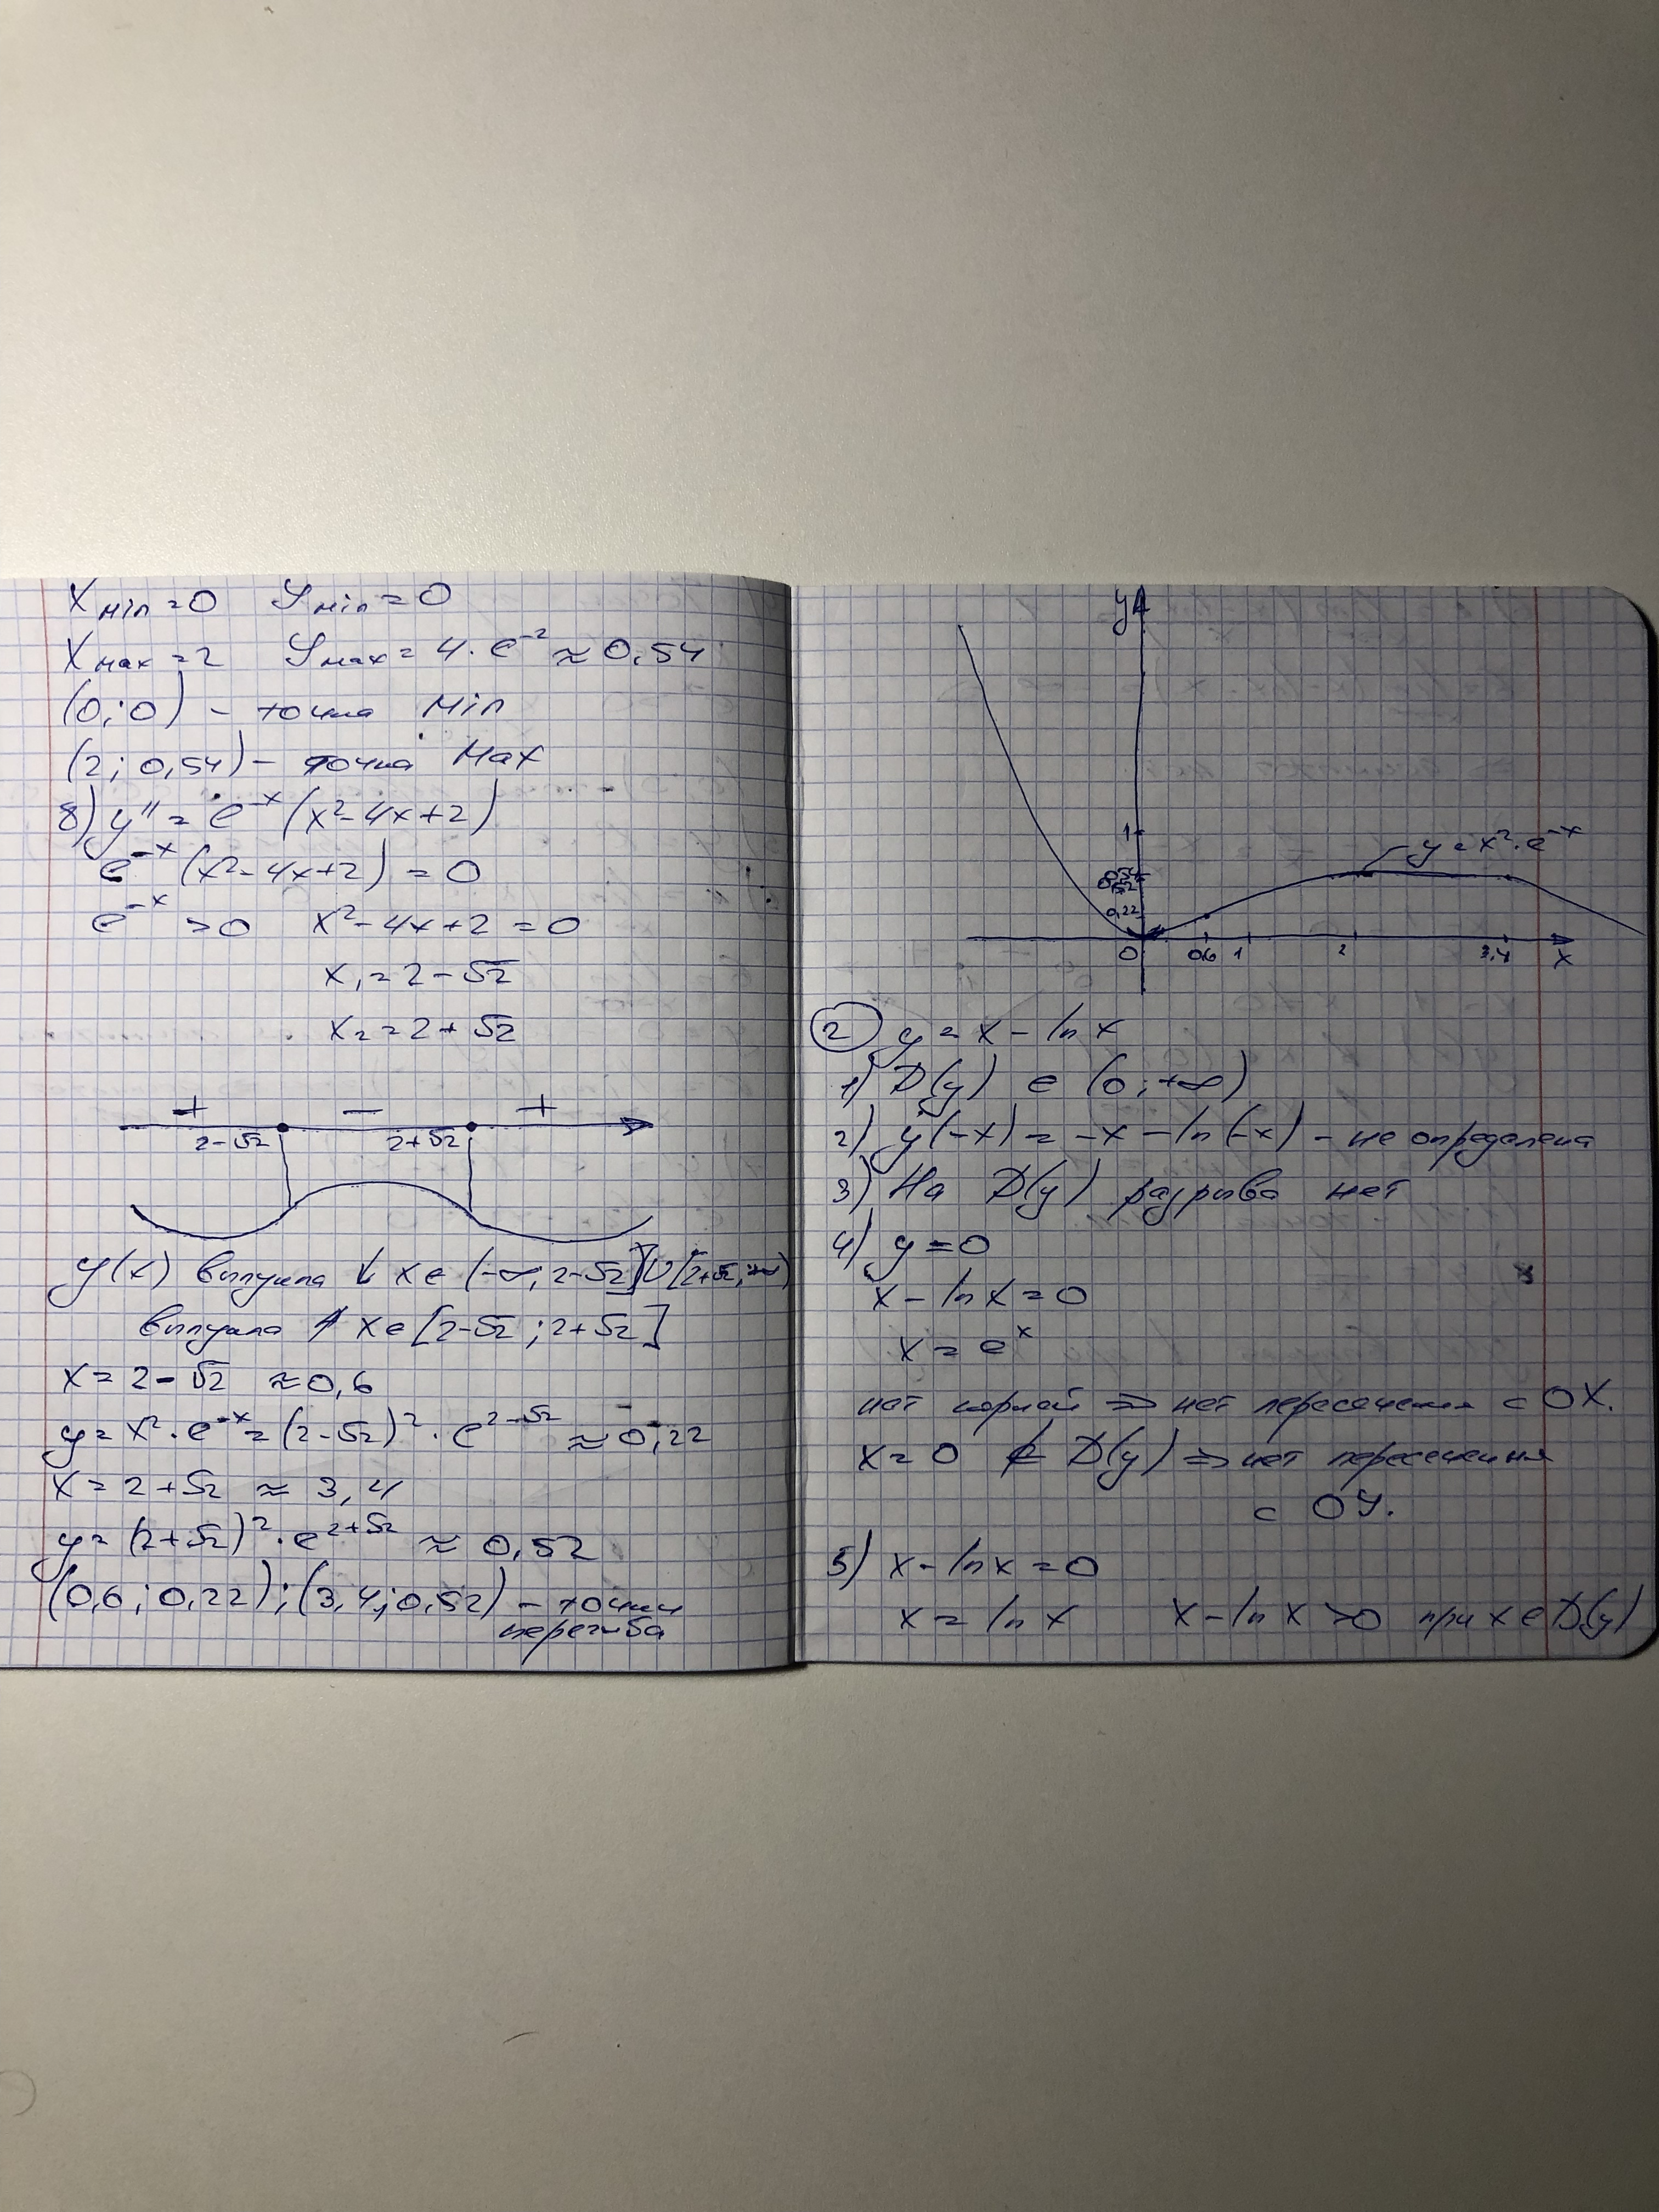 Xmin=0 Ymin=0
Xmax=2 Ymax=4·e⁻² ≈0,54
(0;0) – точка min
(2; 0,54) – точка Max
8) y'' = e⁻ˣ(x²-4x+2)
e⁻ˣ(x²-4x+2) = 0
e⁻ˣ >0 x²-4x+2=0
x₁=2-√2
x₂=2+√2
+ – +
2-√2 2+√2
y(x) выпукла ↓ x∈(-∞; 2-√2]∪[2+√2; +∞)
выпукла ↑ x∈[2-√2; 2+√2]
x=2-√2 ≈0,6
y=x²·e⁻ˣ=(2-√2)²·e²⁻√² ≈0,22
x=2+√2 ≈ 3,4
y=(2+√2)²·e²⁺√² ≈ 0,52
(0,6; 0,22); (3,4; 0,52) – точки
перегиба
y
1
0,54
0,52
0,22
y=x²·e⁻ˣ
0 0,6 1 2 3,4 x
② y=x-ln x
1) D(y) ∈ (0; +∞)
2) y(-x) = -x-ln(-x) – не определена
3) На D(y) разрыва нет
4) y=0
x-ln x=0
x=eˣ
нет корней ⇒ нет пересечения с OX.
x=0 ∉ D(y) ⇒ нет пересечения
с OY.
5) x-ln x=0
x=ln x x-ln x >0 при x∈D(y)